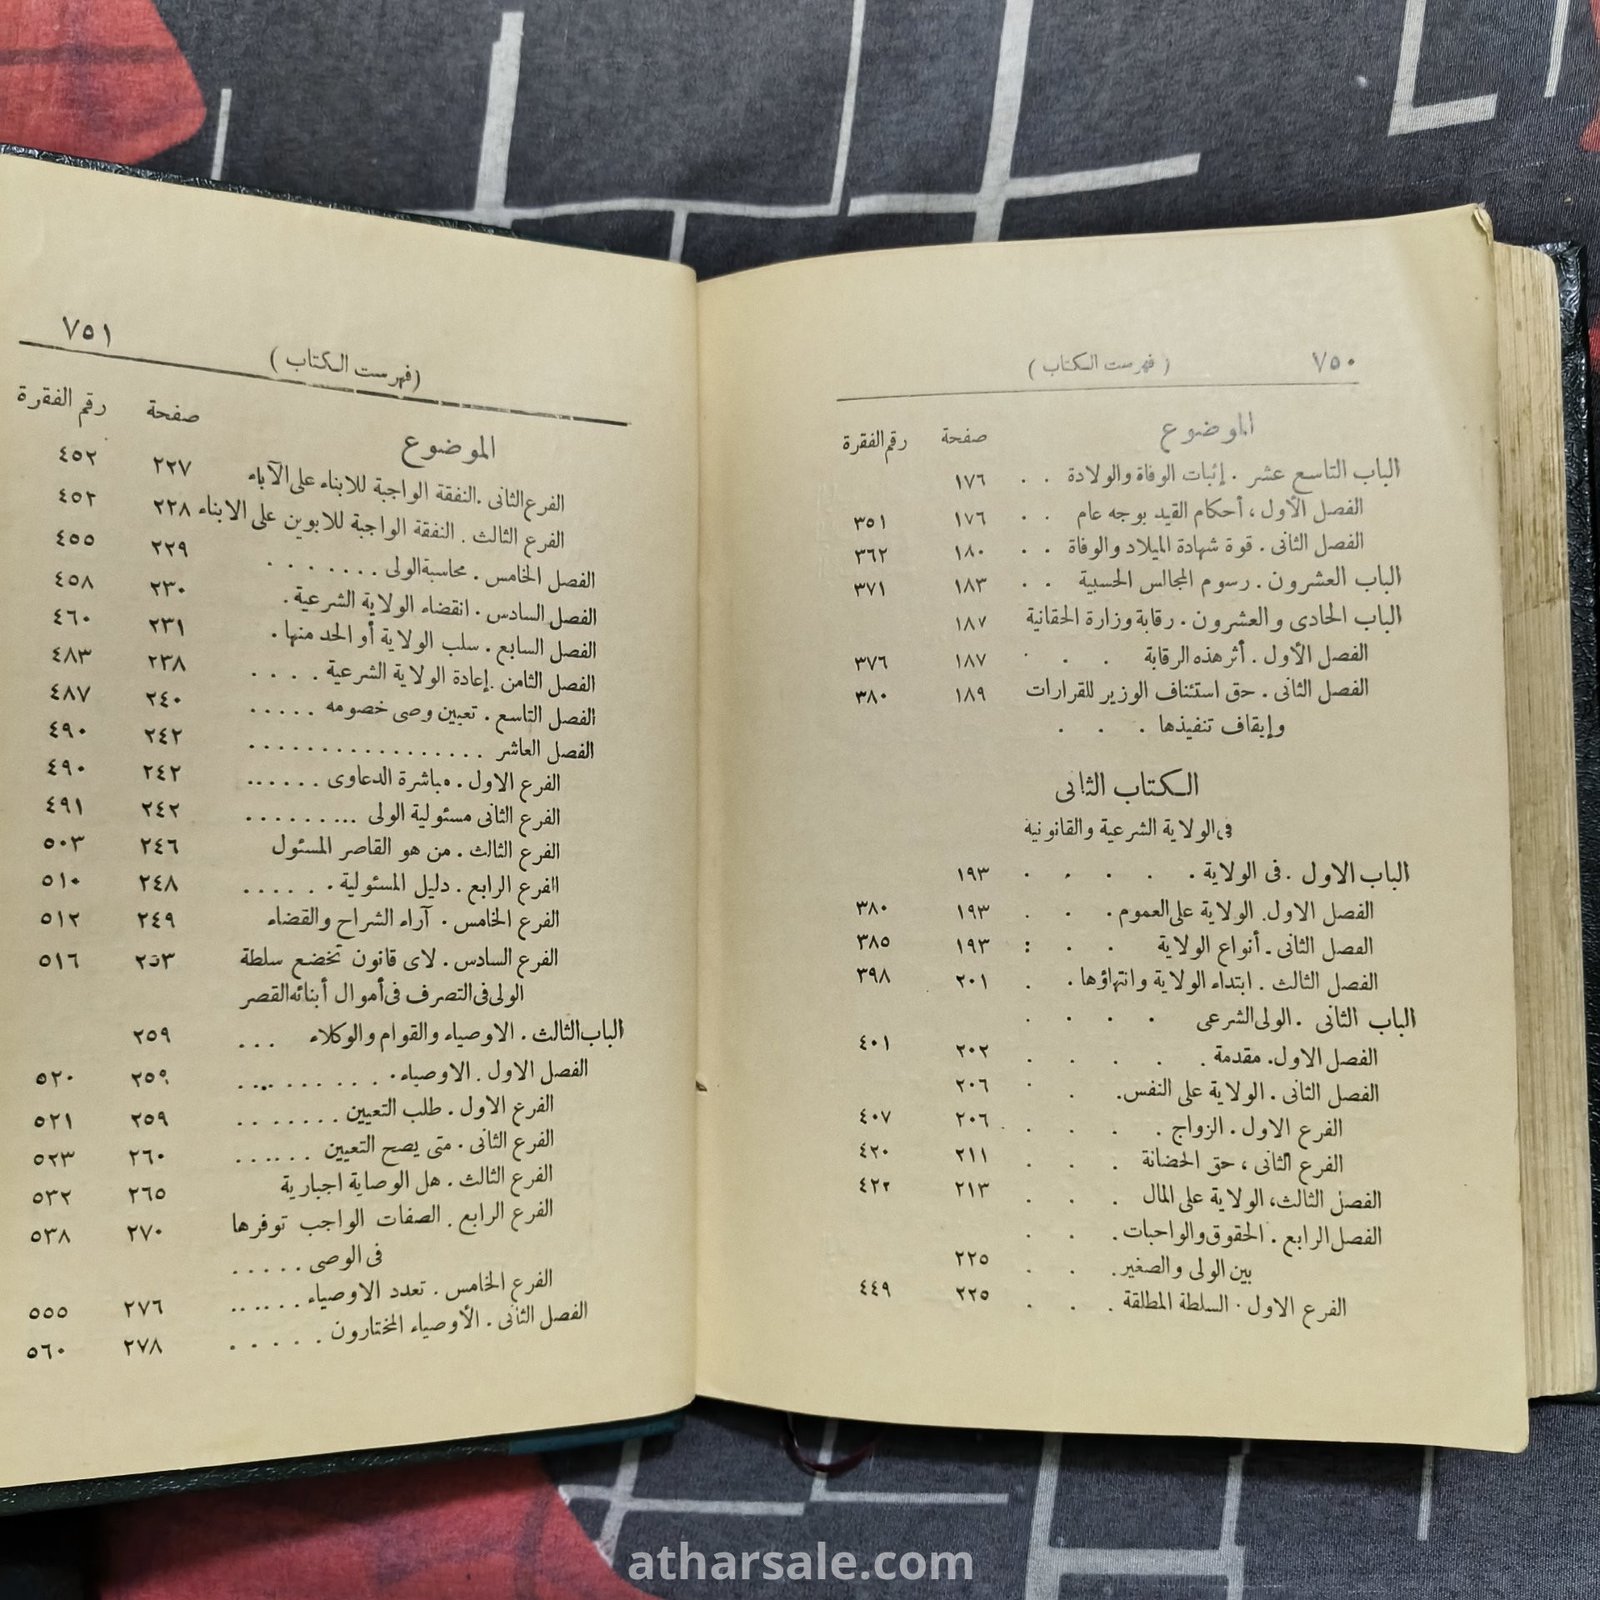 ٧٥٠ ( فهرست الكتاب )
الموضوع صفحة رقم الفقرة
الباب التاسع عشر . إثبات الوفاة والولادة . . ١٧٦
الفصل الأول ، أحكام القيد بوجه عام . . ١٧٦ ٣٥١
الفصل الثانى . قوة شهادة الميلاد والوفاة . . ١٨٠ ٣٦٢
الباب العشرون . رسوم المجالس الحسبية . . ١٨٣ ٣٧١
الباب الحادى والعشرون . رقابة وزارة الحقانية ١٨٧
الفصل الأول . أثر هذه الرقابة . . . ١٨٧ ٣٧٦
الفصل الثانى . حق استئناف الوزير للقرارات ١٨٩ ٣٨٠
وإيقاف تنفيذها . . .
الكتاب الثانى
فى الولاية الشرعية والقانونية
الباب الاول . فى الولاية . . . . . ١٩٣
الفصل الاول. الولاية على العموم . . . ١٩٣ ٣٨٠
الفصل الثانى . أنواع الولاية . . : ١٩٣ ٣٨٥
الفصل الثالث . ابتداء الولاية وانتهاؤها . . ٢٠١ ٣٩٨
الباب الثانى . الولى الشرعى . . . .
الفصل الاول. مقدمة . . . . . ٢٠٢ ٤٠١
الفصل الثانى . الولاية على النفس. . . ٢٠٦
الفرع الاول . الزواج . . . . ٢٠٦ ٤٠٧
الفرع الثانى ، حق الحضانة . . . ٢١١ ٤٢٠
الفصل الثالث، الولاية على المال . . . ٢١٣ ٤٢٢
الفصل الرابع . الحقوق والواجبات . . .
بين الولى والصغير . . . ٢٢٥
الفرع الاول . السلطة المطلقة . . . ٢٢٥ ٤٤٩
(فهرست الكتاب ) ٧٥١
الموضوع صفحة رقم الفقرة
الفرع الثانى . النفقة الواجبة للابناء على الآباء ٢٢٧ ٤٥٢
الفرع الثالث . النفقة الواجبة للابوين على الابناء ٢٢٨ ٤٥٢
الفصل الخامس . محاسبة الولى . . . . . . . ٢٢٩ ٤٥٥
الفصل السادس . انقضاء الولاية الشرعية . ٢٣٠ ٤٥٨
الفصل السابع . سلب الولاية أو الحد منها . ٢٣١ ٤٦٠
الفصل الثامن . إعادة الولاية الشرعية . . . . ٢٣٨ ٤٨٣
الفصل التاسع . تعيين وصى خصومه . . . . . ٢٤٠ ٤٨٧
الفصل العاشر . . . . . . . . . . . . . . . . . ٢٤٢ ٤٩٠
الفرع الاول . مباشرة الدعاوى . . . . . . ٢٤٢ ٤٩٠
الفرع الثانى مسئولية الولى . . . . . . . . . ٢٤٢ ٤٩١
الفرع الثالث . من هو القاصر المسئول ٢٤٦ ٥٠٣
الفرع الرابع . دليل المسئولية . . . . . . ٢٤٨ ٥١٠
الفرع الخامس . آراء الشراح والقضاء ٢٤٩ ٥١٢
الفرع السادس . لاى قانون تخضع سلطة ٢٥٣ ٥١٦
الولى فى التصرف فى أموال أبنائه القصر
الباب الثالث . الاوصياء والقوام والوكلاء . . . ٢٥٩
الفصل الاول . الاوصياء . . . . . . . . . . ٢٥٩ ٥٢٠
الفرع الاول . طلب التعيين . . . . . . . . ٢٥٩ ٥٢١
الفرع الثانى . متى يصح التعيين . . . . . . ٢٦٠ ٥٢٣
الفرع الثالث . هل الوصاية اجبارية ٢٦٥ ٥٣٢
الفرع الرابع . الصفات الواجب توفرها ٢٧٠ ٥٣٨
فى الوصى . . . . .
الفرع الخامس . تعدد الاوصياء . . . . . . ٢٧٦ ٥٥٥
الفصل الثانى . الأوصياء المختارون . . . . . ٢٧٨ ٥٦٠
atharsale.com